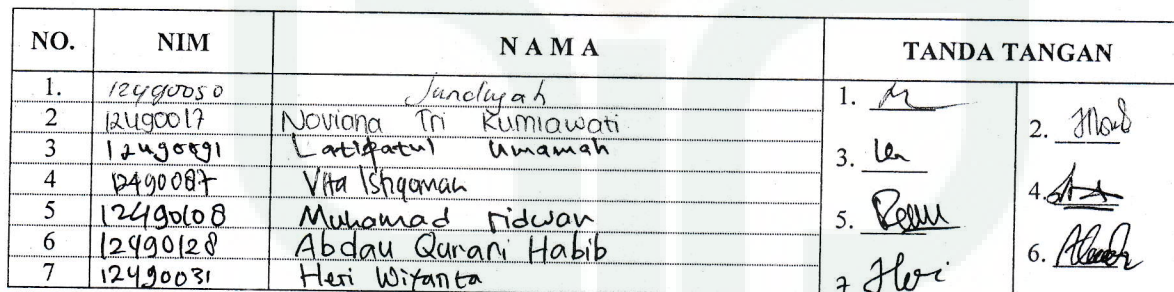 NO. NIM NAMA TANDA TANGAN
1. 12490050 Jundiyah 1.
2 12490017 Noviana Tri Kurniawati 2.
3 12490091 Latifatul Umamah 3.
4 12490087 Vita Istiqomah 4.
5 12490108 Muhamad ridwan 5.
6 12490128 Abdau Qurani Habib 6.
7 12490031 Heri Wiyanta 7 Heri